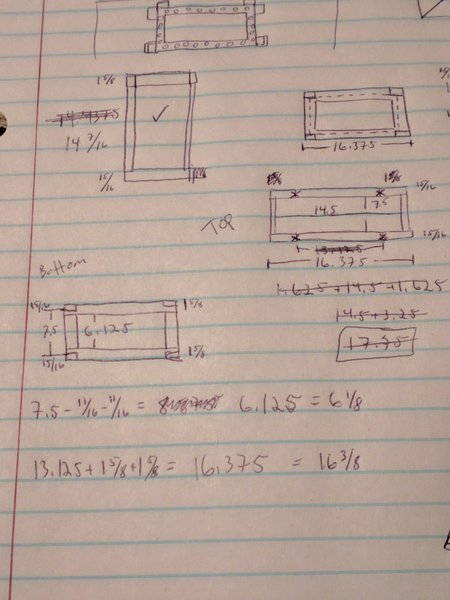 1 5/8
14.4375
14 7/16
15/16
16.375
15/8
15/8
15/16
14.5
7.5
TOP
15/16
13.125
16.375
1.625+14.5+1.625
14.5+3.25
17.75
Bottom
15/16
1 5/8
7.5
6.125
15/16
1 5/8
7.5 - 11/16 - 11/16 = 6.125 = 6 1/8
13.125 + 1 5/8 + 1 5/8 = 16.375 = 16 3/8